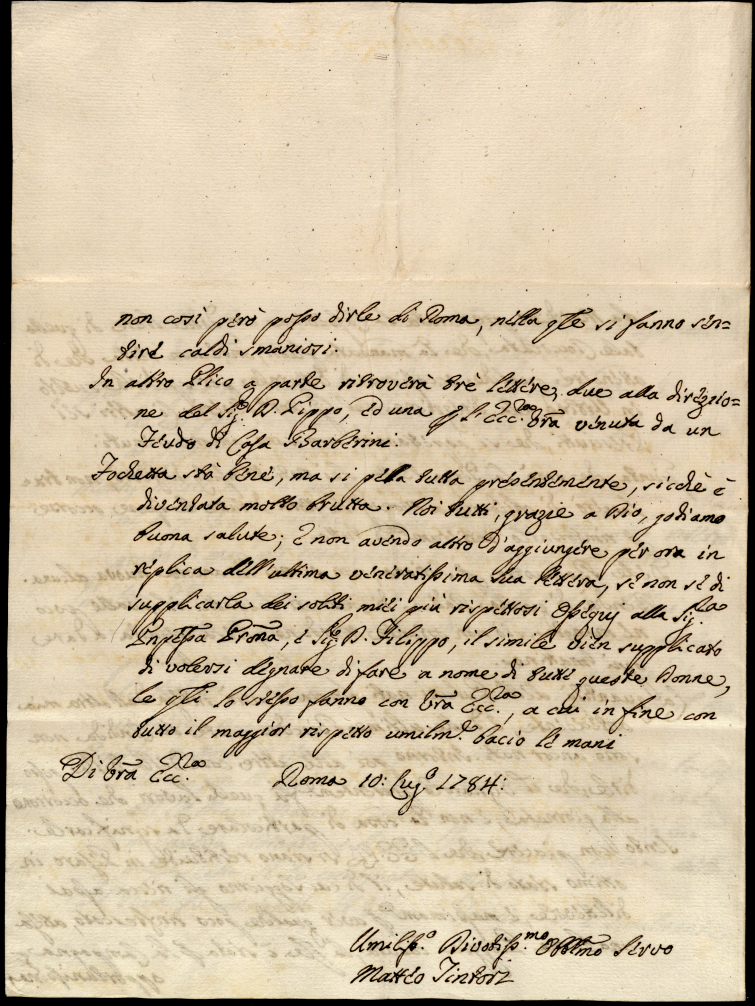 non così però posso dirle di Roma, nella qle si fanno sen=
tire caldi smaniosi.
In altro Plico a parte ritroverà trè lettere, due alla direzio=
ne del Sig.r D. Pippo, ed una p S. Ecc.za Vrã venuta da un
Feudo di Casa Barberini.
Fochetta stà bene, ma si pela tutta presentemente, sicchè è
diventata molto brutta. Noi tutti, grazie a Dio, godiamo
buona salute; E non avendo altro d'aggiungere per ora in
replica dell'ultima veneratissima sua lettera, se non se di
supplicarla dei soliti miei più rispettosi Ossequj alla Sig.ra
Prñpessa Prõna, e Sig.r D. Filippo, il simile vien supplicato
di volersi degnare di fare a nome di tutte queste Donne,
le qli lo stesso fanno con Vrã Ecc.za, a cui in fine con
tutto il maggior rispetto umilm.e bacio le mani
Di Vrã Ecc.za Roma 10: Lug.o 1784:
Umiliss.o Divotiss.mo Obblmo Servo
Matteo Tintori